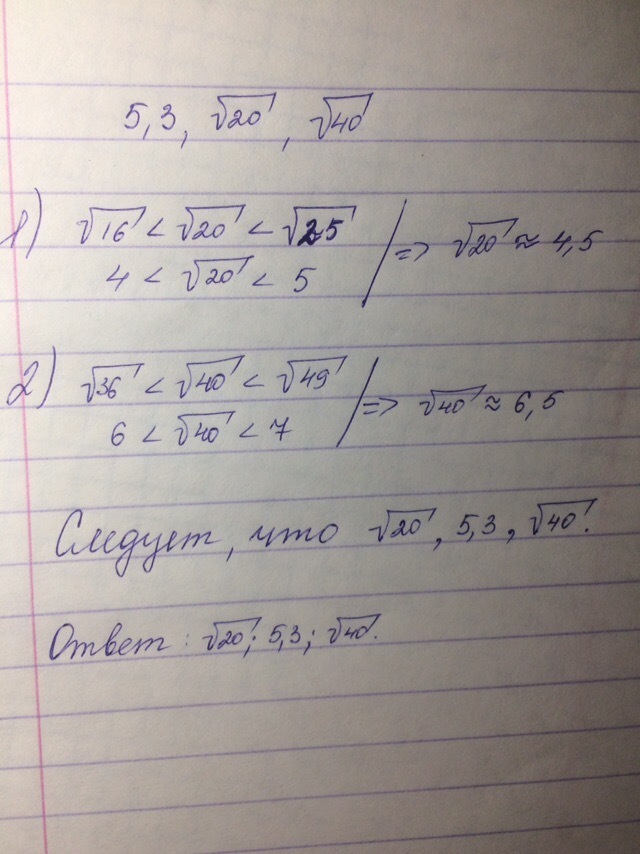 5,3, √20, √40
1) √16 < √20 < √25
4 < √20 < 5 | => √20 ≈ 4,5
2) √36 < √40 < √49
6 < √40 < 7 | => √40 ≈ 6,5
Следует, что √20, 5,3, √40.
Ответ: √20; 5,3; √40.